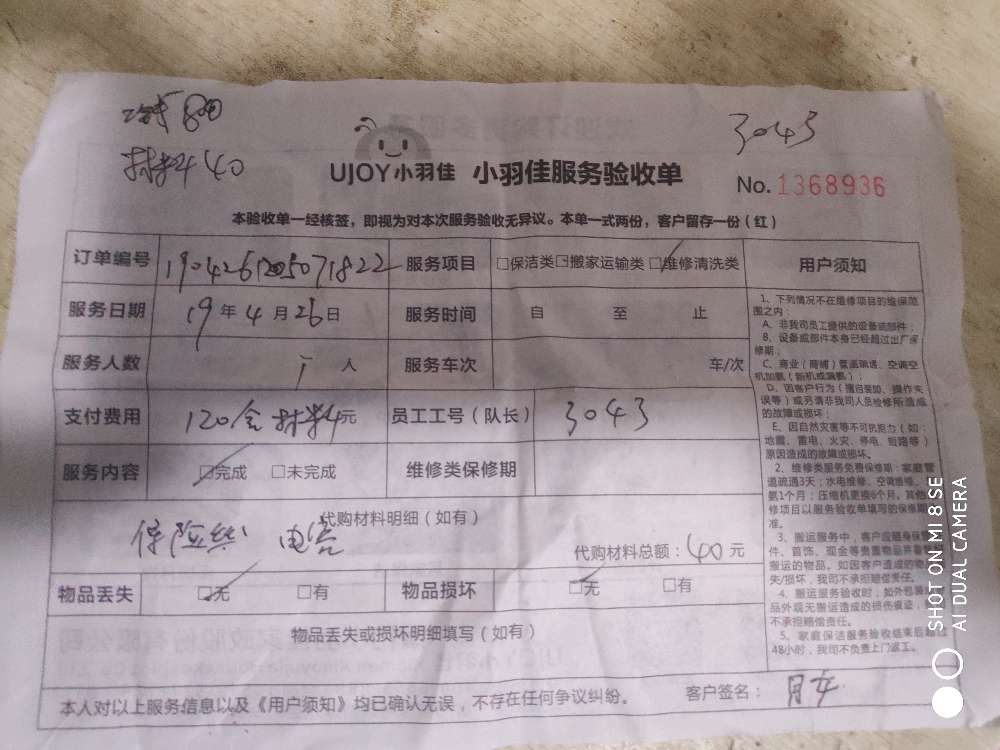 80
3043
材料40
UJOY小羽佳 小羽佳服务验收单
No.1368936
本验收单一经核签，即视为对本次服务验收无异议。本单一式两份，客户留存一份（红）
订单编号 1904261205071822 服务项目 □保洁类□搬家运输类□维修清洗类 用户须知
服务日期 19年4月26日 服务时间 自 至 止
服务人数 1人 服务车次 车/次
支付费用 120含材料4元 员工工号（队长） 3043
服务内容 □完成 □未完成 维修类保修期
代购材料明细（如有）
保险丝 电容
代购材料总额：40元
物品丢失 □无 □有 物品损坏 □无 □有
物品丢失或损坏明细填写（如有）
本人对以上服务信息以及《用户须知》均已确认无误，不存在任何争议纠纷。 客户签名：
1、下列情况不在维修项目的维保范
围之内：
A、非我司员工提供的设备或部件；
B、设备或部件本身已经超过出厂保
修期；
C、商业（商铺）管道疏通、空调空
机加氨（新机或漏氨）；
D、因客户行为（擅自装卸、操作失
误等）或另请非我司人员检修所造成
的故障或损坏；
E、因自然灾害等不可抗拒力（如：
地震、雷电、火灾、停电、短路等）
原因造成的故障或损坏。
2、维修类服务免费保修期：家庭管
道疏通3天；水电维修、空调维修、
氨1个月；压缩机更换6个月，其他
修项目以服务验收单填写的保修期
准。
3、搬运服务中，客户应随身保
件、首饰、现金等贵重物品并看
搬运的物品。如因客户造成的物
失/损坏，我司不承担赔偿责任。
4、搬运服务验收时，如外包装
品外观无搬运造成的损伤痕迹，
不承担赔偿责任。
5、家庭保洁服务验收结束后超过
48小时，我司不负责上门返工。
SHOT ON MI 8 SE
AI DUAL CAMERA